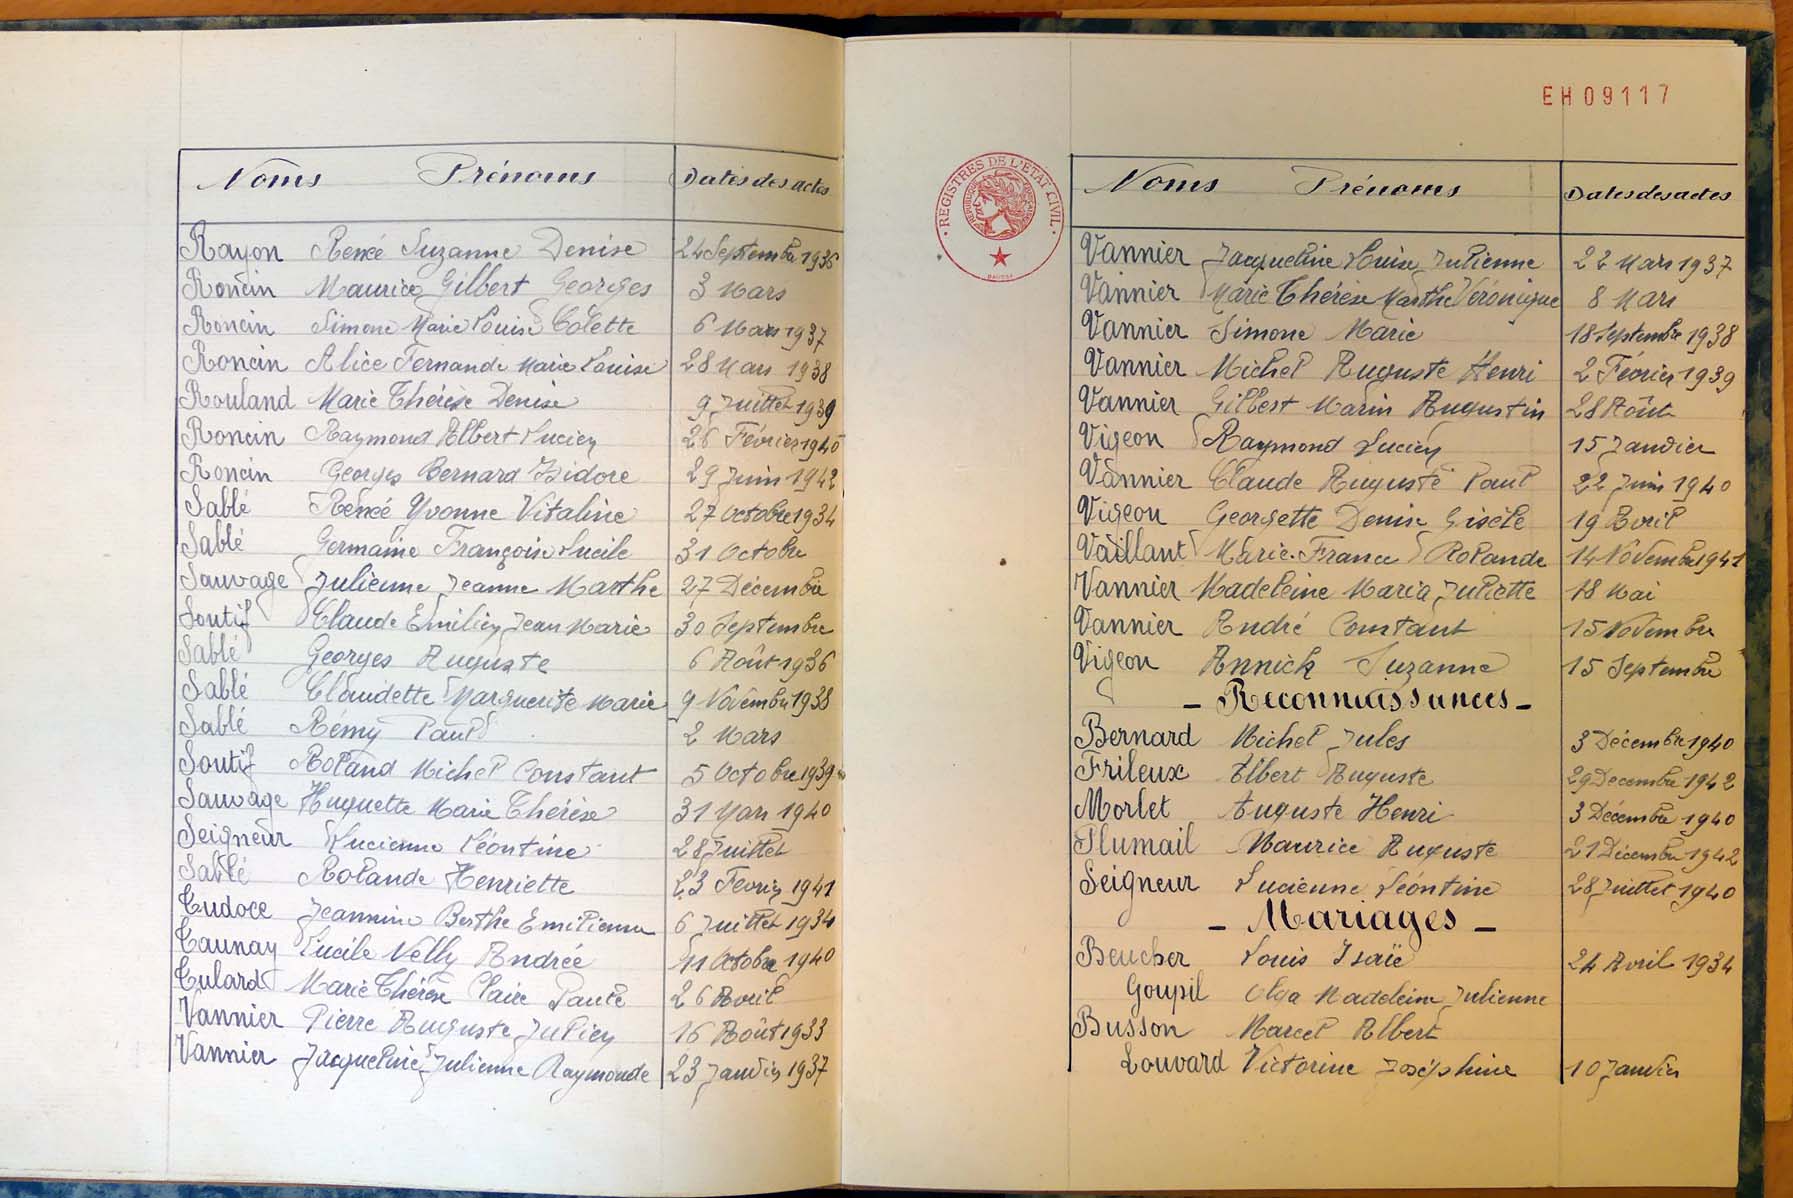 Noms Prénoms Dates des actes
Rayon Renée Suzanne Denise 24 Septembre 1936
Roncin Maurice Gilbert Georges 3 Mars
Roncin Simone Marie Louise Colette 6 Mars 1937
Roncin Alice Fernande Marie Louise 28 Mars 1938
Rouland Marie Thérèse Denise 9 Juillet 1939
Roncin Raymond Albert Lucien 26 Février 1940
Roncin Georges Bernard Isidore 29 Juin 1942
Sablé Renée Yvonne Vitaline 27 Octobre 1934
Sablé Germaine Françoise Lucile 31 Octobre
Sauvage Julienne Jeanne Marthe 27 Décembre
Soutif Claude Emilien Jean Marie 30 Septembre
Sablé Georges Auguste 6 Août 1936
Sablé Claudette Marguerite Marie 9 Novembre 1938
Sablé Rémy Paul 2 Mars
Soutif Roland Michel Constant 5 Octobre 1939
Sauvage Huguette Marie Thérèse 31 Mars 1940
Seigneur Lucienne Léontine 28 Juillet
Sablé Rolande Henriette 23 Février 1941
Tudoce Jeannine Berthe Emilienne 6 Juillet 1934
Taunay Lucile Nelly Andrée 11 Octobre 1940
Tulard Marie Thérèse Claire Paule 26 Avril
Vannier Pierre Auguste Julien 16 Août 1933
Vannier Jacqueline Julienne Raymonde 23 Janvier 1937
EH09117
REGISTRES DE L'ETAT CIVIL
Noms Prénoms Dates des actes
Vannier Jacqueline Louise Julienne 22 Mars 1937
Vannier Marie Thérèse Marthe Véronique 8 Mars
Vannier Simone Marie 18 Septembre 1938
Vannier Michel Auguste Henri 2 Février 1939
Vannier Gilbert Marin Augustin 28 Août
Vigeon Raymond Lucien 15 Janvier
Vannier Claude Auguste Paul 22 Juin 1940
Vigeon Georgette Denise Gisèle 19 Avril
Vaillant Marie-France Rolande 14 Novembre 1941
Vannier Madeleine Maria Juliette 18 Mai
Vannier André Constant 15 Novembre
Vigeon Annick Suzanne 15 Septembre
- Reconnaissances -
Bernard Michel Jules 3 Décembre 1940
Frileux Albert Auguste 29 Décembre 1942
Morlet Auguste Henri 3 Décembre 1940
Plumail Maurice Auguste 21 Décembre 1942
Seigneur Lucienne Léontine 28 Juillet 1940
- Mariages -
Beucher Louis Isaïe 24 Avril 1934
Goupil Olga Madeleine Julienne
Busson Marcel Albert
Louvard Victorine Joséphine 10 Janvier